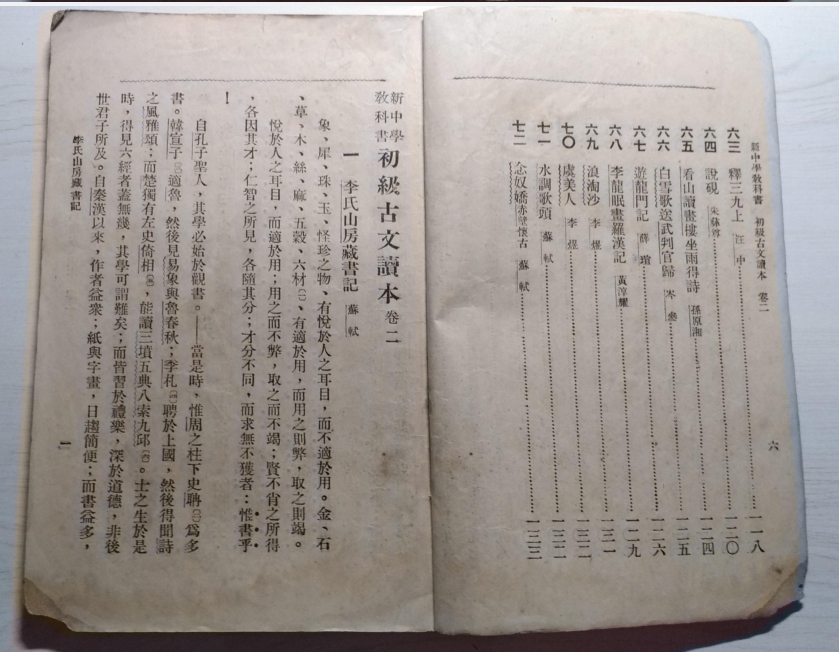 新中學教科書 初級古文讀本 卷二
六
六三 釋三九上 汪中 一一八
六四 說硯 朱彝尊 一二〇
六五 看山讀畫樓坐雨得詩 孫原湘 一二四
六六 白雪歌送武判官歸 岑參 一二五
六七 遊龍門記 薛瑄 一二六
六八 李龍眠畫羅漢記 黃淳耀 一二九
六九 浪淘沙 李煜 一三一
七〇 虞美人 李煜 一三二
七一 水調歌頭 蘇軾 一三二
七二 念奴嬌赤壁懷古 蘇軾 一三三
新中學教科書 初級古文讀本 卷二
一 李氏山房藏書記 蘇軾
象、犀、珠、玉、怪珍之物、有悅於人之耳目,而不適於用。金、石
、草、木、絲、麻、五穀、六材(一)、有適於用,而用之則弊,取之則竭。
悅於人之耳目,而適於用;用之而不弊,取之而不竭;賢不肖之所得
,各因其才;仁智之所見,各隨其分;才分不同,而求無不獲者:惟書乎
!
自孔子聖人,其學必始於觀書。——當是時,惟周之柱下史聃(二)爲多
書。韓宣子(三)適魯,然後見易象與魯春秋;季札(四)聘於上國,然後得聞詩
之風雅頌;而楚獨有左史倚相(五),能讀三墳五典八索九邱(六)。士之生於是
時,得見六經者蓋無幾,其學可謂難矣;而皆習於禮樂,深於道德,非後
世君子所及。自秦漢以來,作者益衆;紙與字畫,日趨簡便;而書益多,
李氏山房藏書記
一